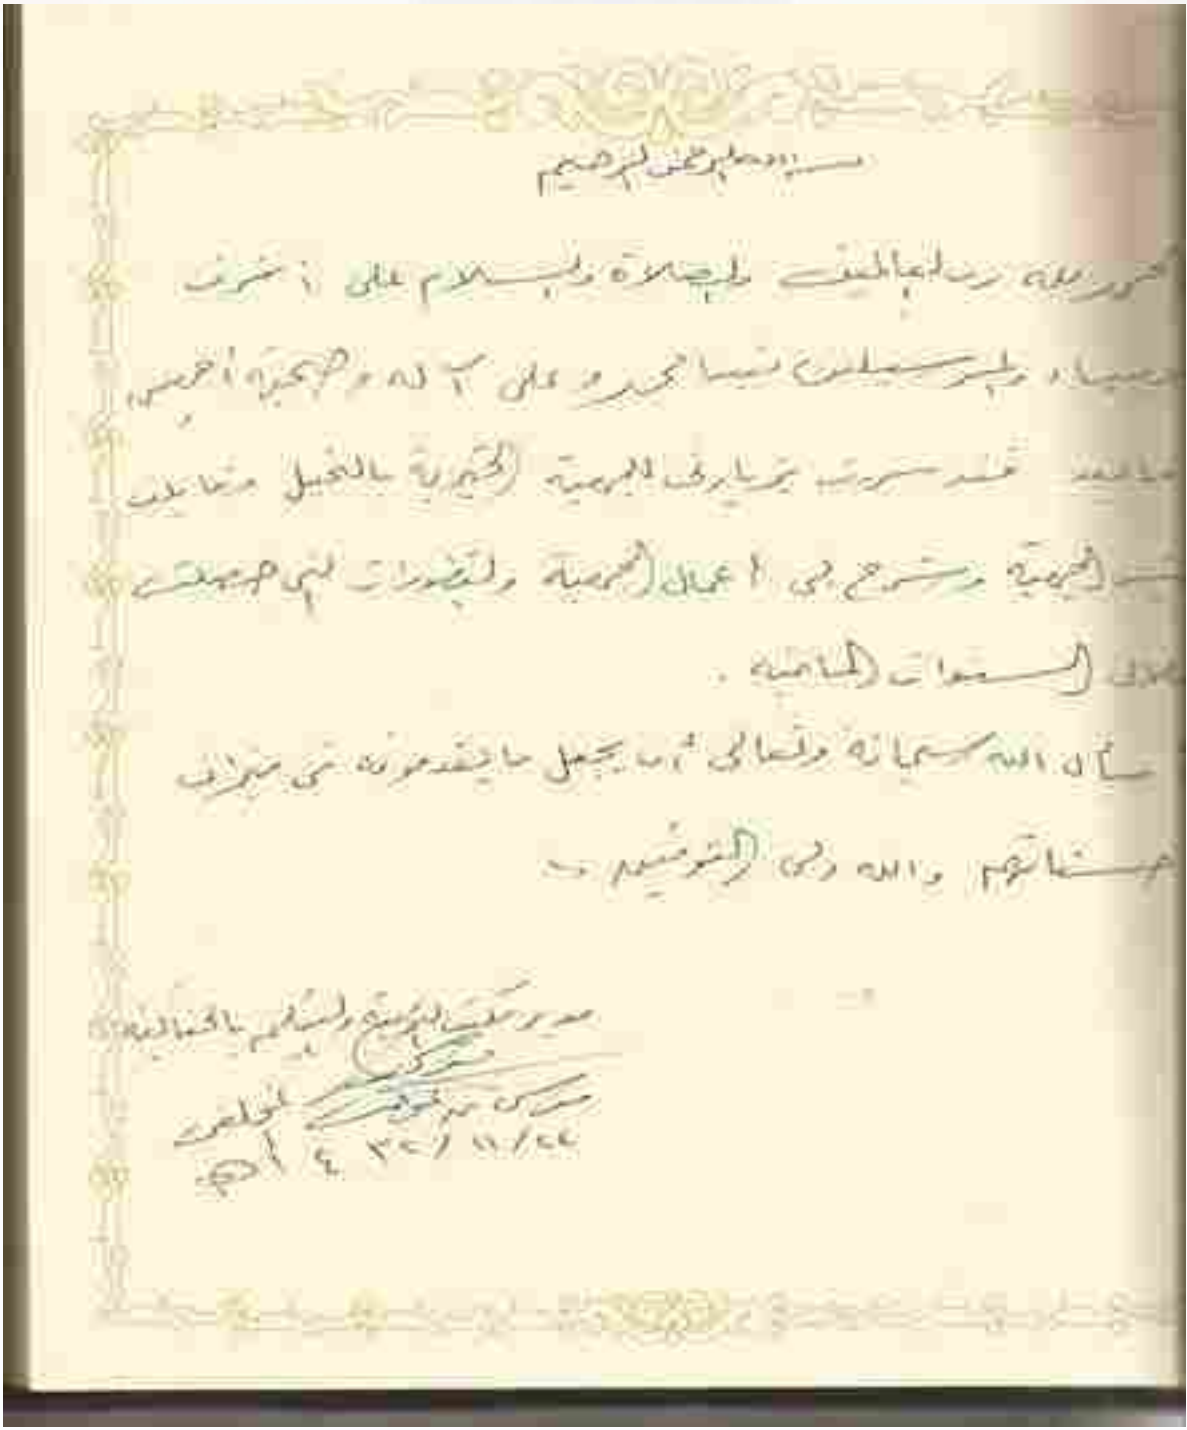 بسم الله الرحمن الرحيم
الحمد لله رب العالمين والصلاة والسلام على أشرف
الأنبياء والمرسلين نبينا محمد وعلى آله وصحبه أجمعين
أما بعد فقد سررت بزيارتي للجمعية الخيرية بالنخيل وقابلت
الجمعية وشرح لي أعمال الجمعية والتطورات التي حصلت
خلال السنوات الماضية .
أسأل الله سبحانه وتعالى أن يجعل ما يقدمونه في ميزان
حسناتهم والله ولي التوفيق ،،
مدير مكتب التربية والتعليم بالحناكية
١٤٣٢/١١/٢٢هـ